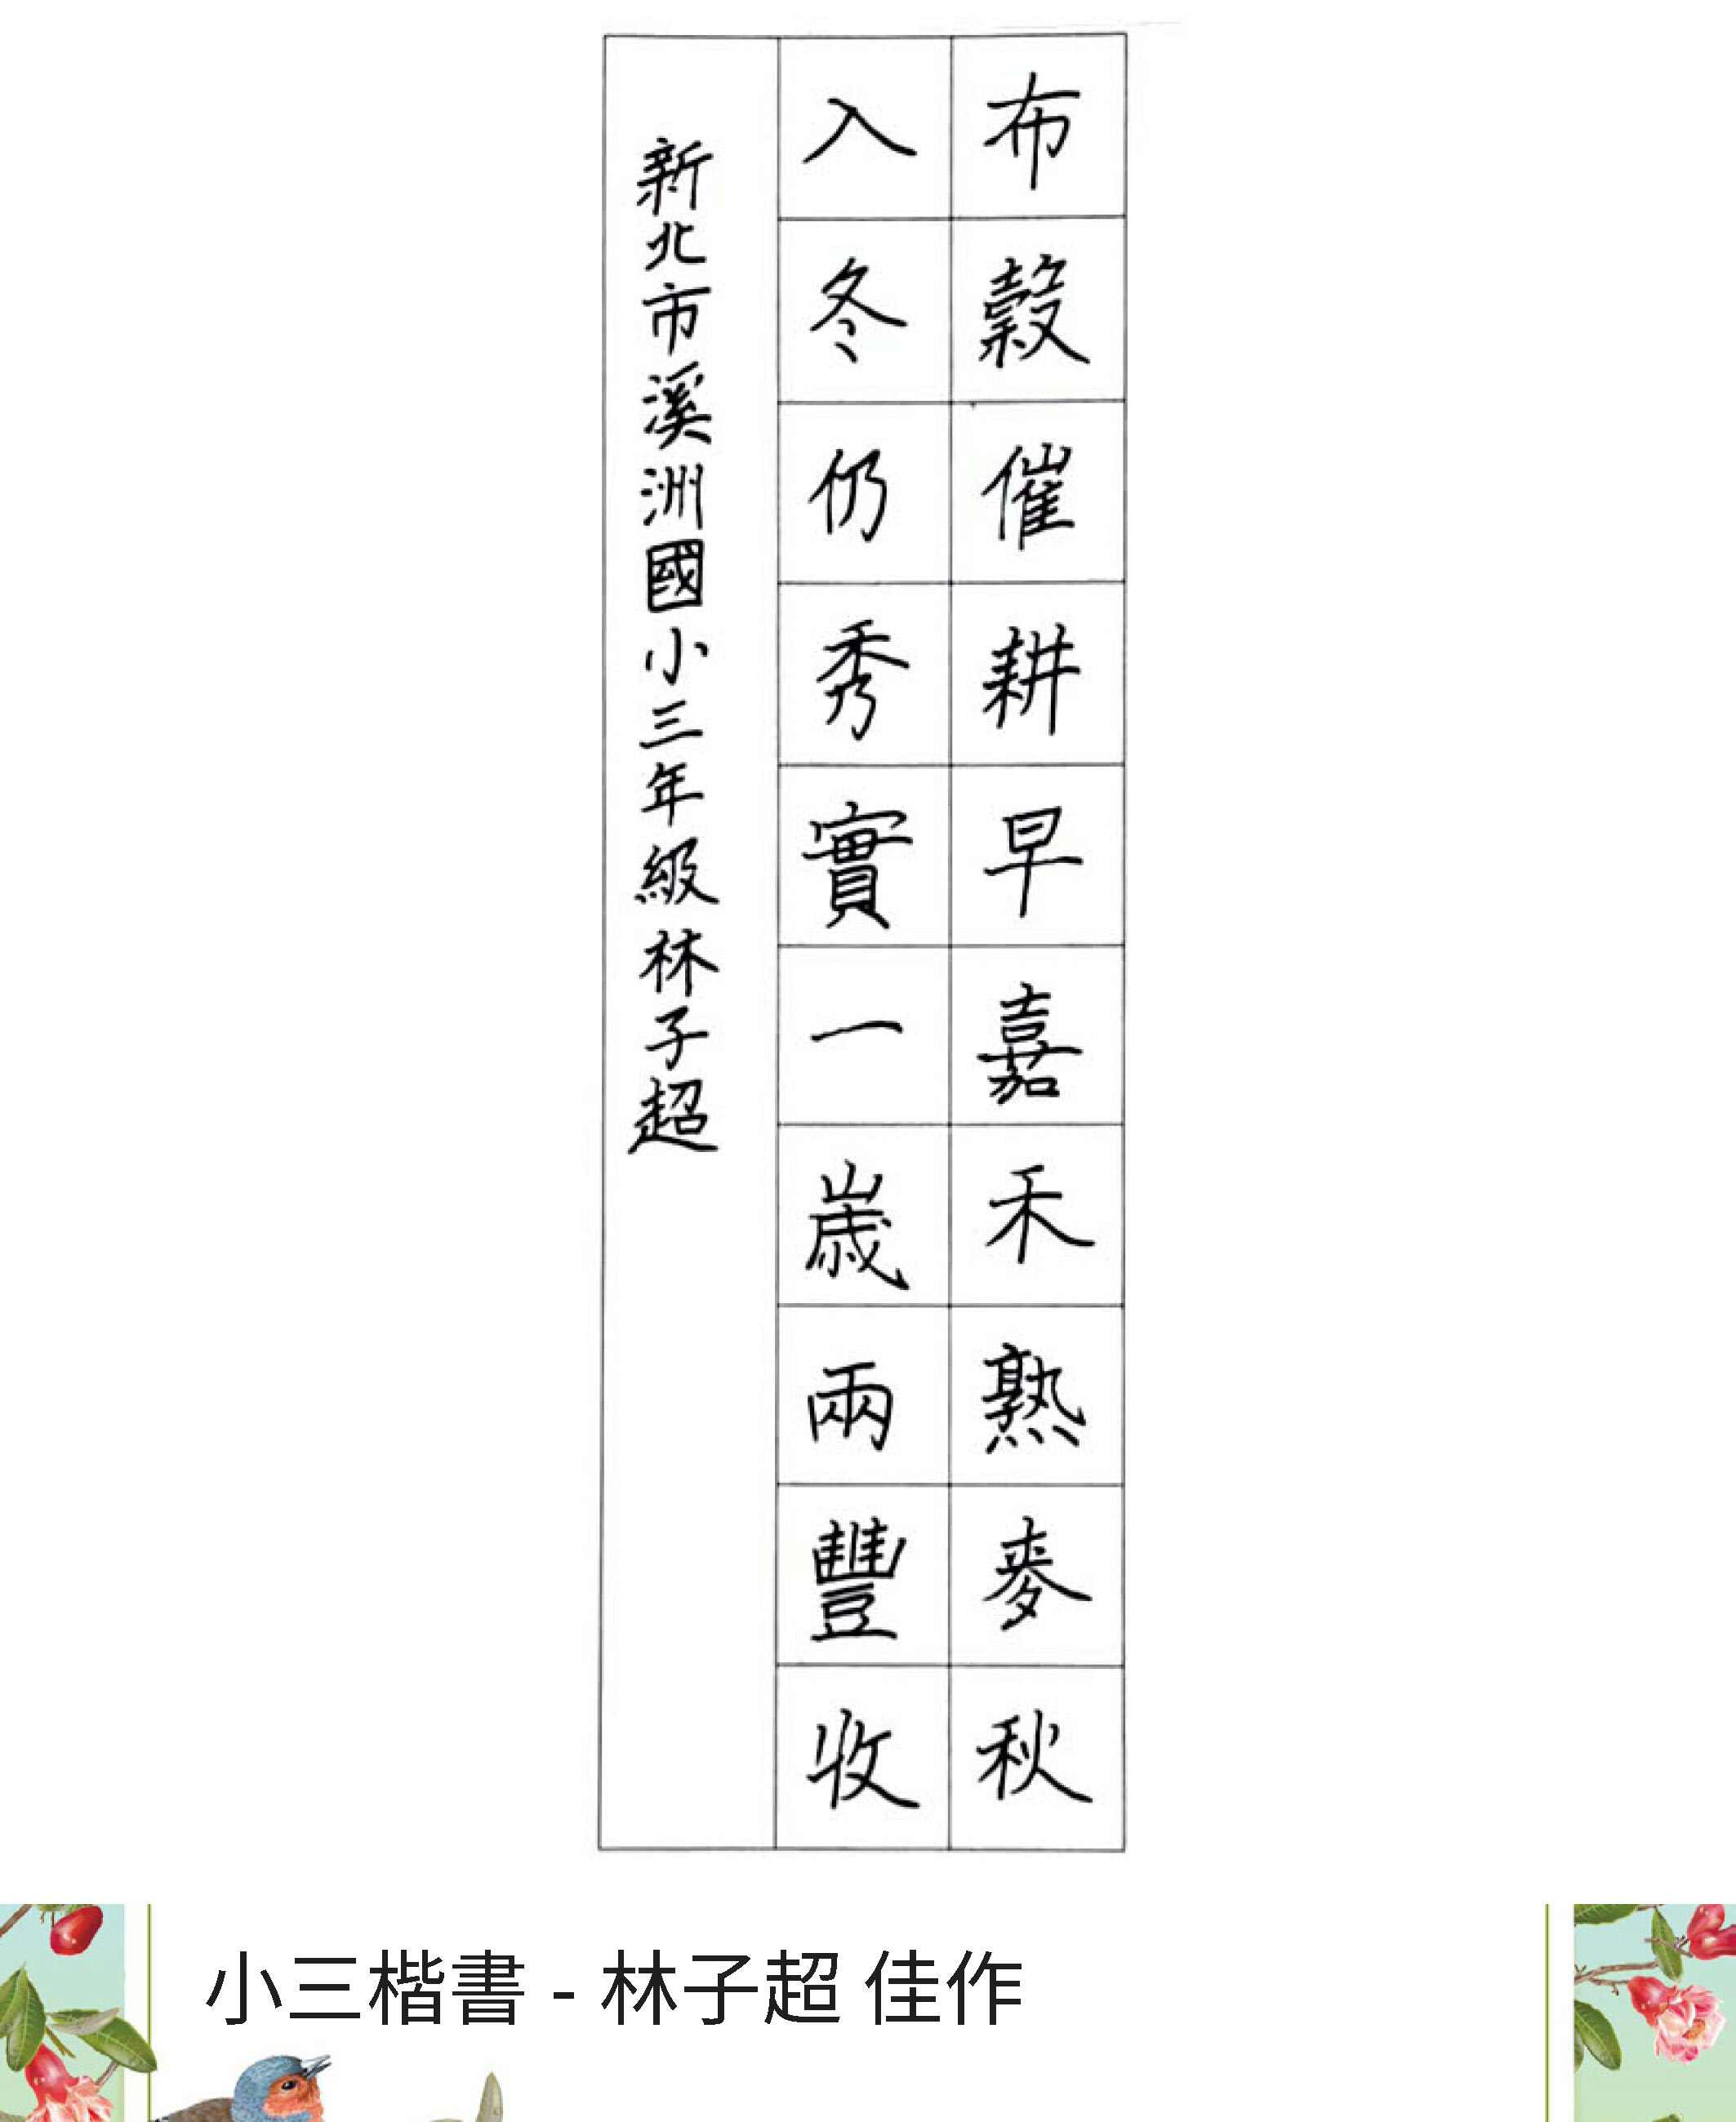 布穀催耕早嘉禾熟麥秋
入冬仍秀實一歲兩豐收
新北市溪洲國小三年級林子超
小三楷書 - 林子超 佳作